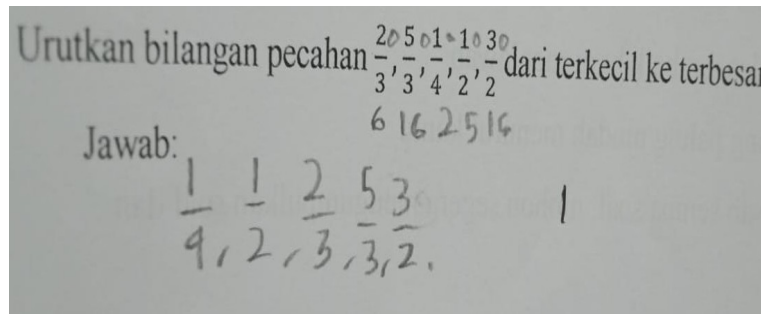 Urutkan bilangan pecahan 2/3, 5/3, 1/4, 1/2, 3/2 dari terkecil ke terbesar
6 16 2 5 1
Jawab:
1/4, 1/2, 2/3, 5/3, 3/2.
1